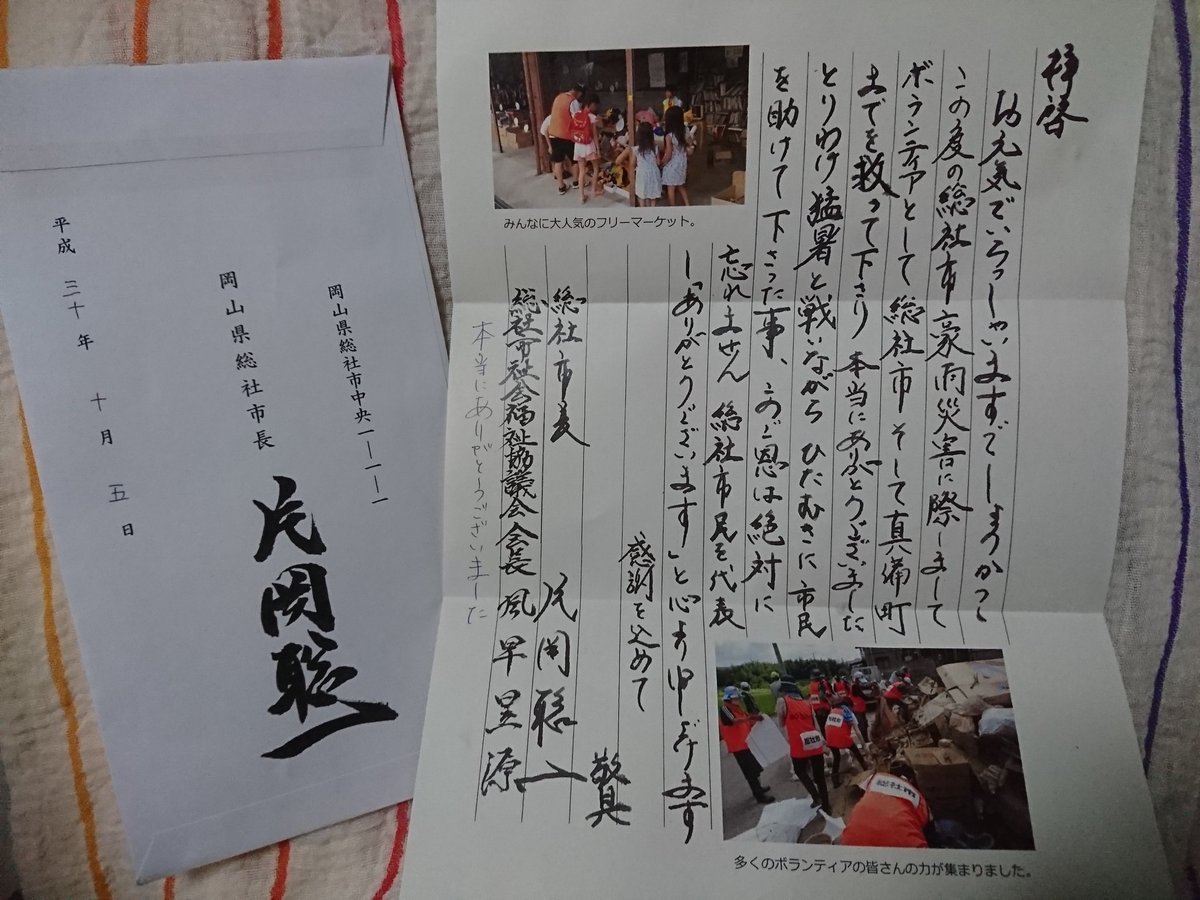 拝啓
お元気でいらっしゃいますでしょうか
この度の総社市豪雨災害に際しまして
ボランティアとして総社市そして真備町
までを救って下さり 本当にありがとうございました
とりわけ猛暑と戦いながら ひたむきに市民
を助けて下さった事、このご恩は絶対に
忘れません 総社市民を代表
し「ありがとうございます」と心より申し上げます
感謝を込めて
敬具
総社市長 片岡聡一
総社市社会福祉協議会会長 風早昱源
本当にありがとうございました
みんなに大人気のフリーマーケット。
多くのボランティアの皆さんの力が集まりました。
総社市
総社市
岡山県総社市中央一―一―一
岡山県総社市長 片岡聡一
平成 三十 年 十 月 五 日